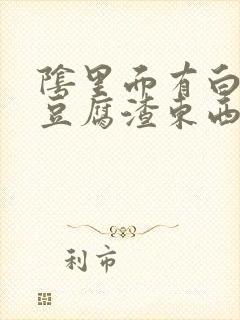 陰里面有白
豆腐渣東西
利市